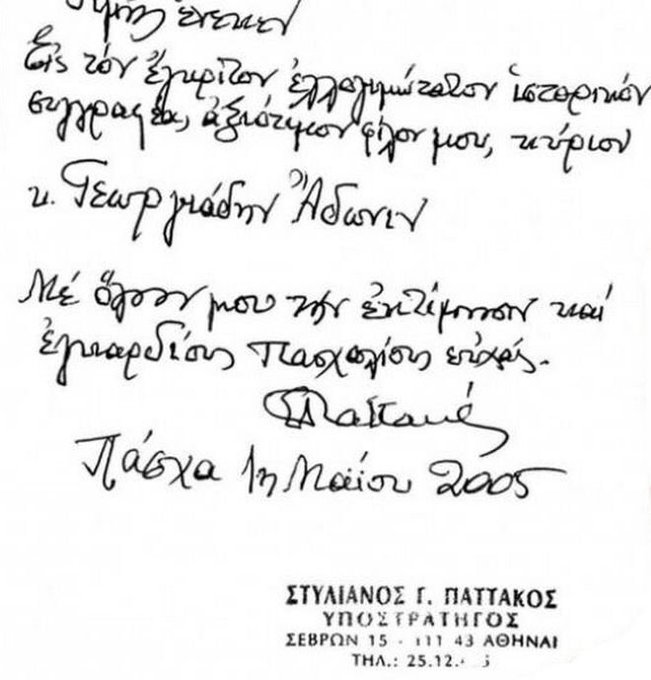 τιμῆς ἕνεκεν
Εἰς τόν ἔγκριτον ἐλλογιμώτατον ἱστορικόν
συγγραφέα, ἀξιότιμον φίλον μου, κύριον
κ. Γεωργιάδην Ἄδωνιν
Μέ ὅλην μου την ἐκτίμησιν καί
ἐγκαρδίους πασχαλίους εὐχάς.
ΣΠαττακός
Πάσχα 1η Μαΐου 2005
ΣΤΥΛΙΑΝΟΣ Γ. ΠΑΤΤΑΚΟΣ
ΥΠΟΣΤΡΑΤΗΓΟΣ
ΣΕΒΡΩΝ 15 - 111 43 ΑΘΗΝΑΙ
ΤΗΛ.: 25.12.